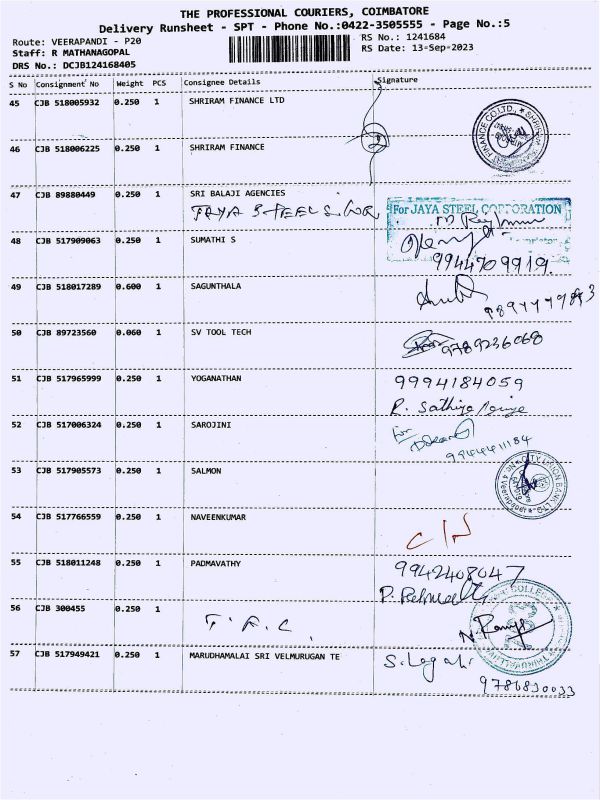 THE PROFESSIONAL COURIERS, COIMBATORE
Delivery Runsheet - SPT - Phone No.:0422-3505555 - Page No.:5
Route: VEERAPANDI - P20
RS No.: 1241684
Staff: R MATHANAGOPAL
RS Date: 13-Sep-2023
DRS No.: DCJB124168405
S No Consignment No Weight PCS Consignee Details Signature
45 CJB 518005932 0.250 1 SHRIRAM FINANCE LTD
46 CJB 518006225 0.250 1 SHRIRAM FINANCE
2
47 CJB 89880449 0.250 1 SRI BALAJI AGENCIES
For JAYA STEEL CORPORATION
48 CJB 517909063 0.250 1 SUMATHI S
9944709919
49 CJB 518017289 0.600 1 SAGUNTHALA
50 CJB 89723560 0.060 1 SV TOOL TECH
9789236068
51 CJB 517965999 0.250 1 YOGANATHAN
9994184059
R. Sathiya
52 CJB 517006324 0.250 1 SAROJINI
For
9944411184
53 CJB 517905573 0.250 1 SALMON
CITY UNION BANK LTD
54 CJB 517766559 0.250 1 NAVEENKUMAR
C/N
55 CJB 518011248 0.250 1 PADMAVATHY
9942408047
56 CJB 300455 0.250 1
T. F. C.
57 CJB 517949421 0.250 1 MARUDHAMALAI SRI VELMURUGAN TE
9786830033